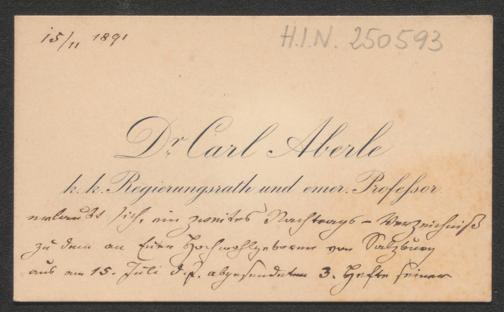 15/11 1891
H.I.N. 250593
Dr Carl Aberle
k. k. Regierungsrath und emer. Professor
erlaubt sich, ein zweites Nachtrags-Verzeichniß
zu dem an Euer Hochwohlgeboren von Salzburg
aus am 15. Juli d. J. abgesendeten 3. Hefte seiner